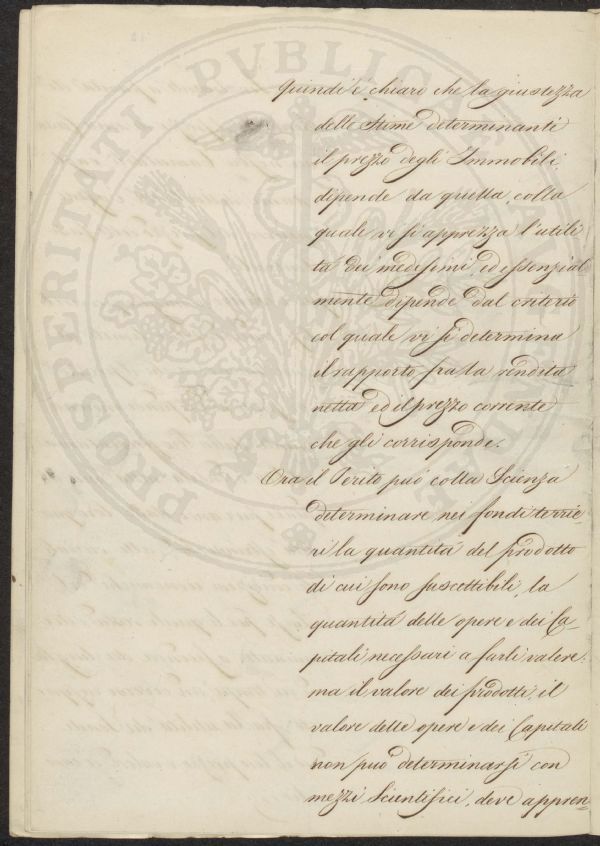 Quindi è chiaro che la giustezza
delle Stime determinanti
il prezzo degli Immobili
dipende da quella, colla
quale vi si apprezza l'utili
tà dei medesimi, ed essenzial
mente dipende dal criterio
col quale vi si determina
il rapporto fra la rendita
netta ed il prezzo corrente
che gli corrisponde.
Ora il Perito può colla Scienza
determinare nei fondi terrie-
ri la quantità del prodotto
di cui sono suscettibili, la
quantità delle opere e dei Ca-
pitali necessari a farli valere:
ma il valore dei prodotti, il
valore delle opere e dei Capitali
non può determinarsi con
mezzi Scientifici, deve appren-
PROSPERITATI PVBLICAE